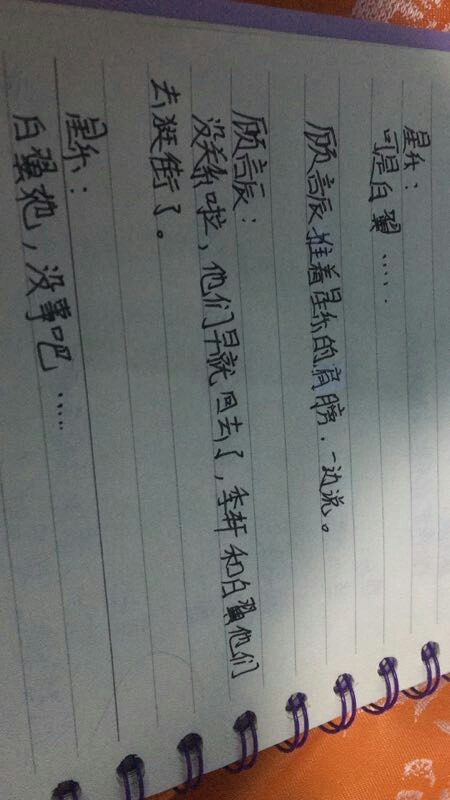 星乐：
可是白翼……
顾言辰推着星乐的肩膀，一边说。
顾言辰：
没关系啦，他们早就回去了，李轩和白翼他们
去逛街了。
星乐：
白翼他，没事吧……